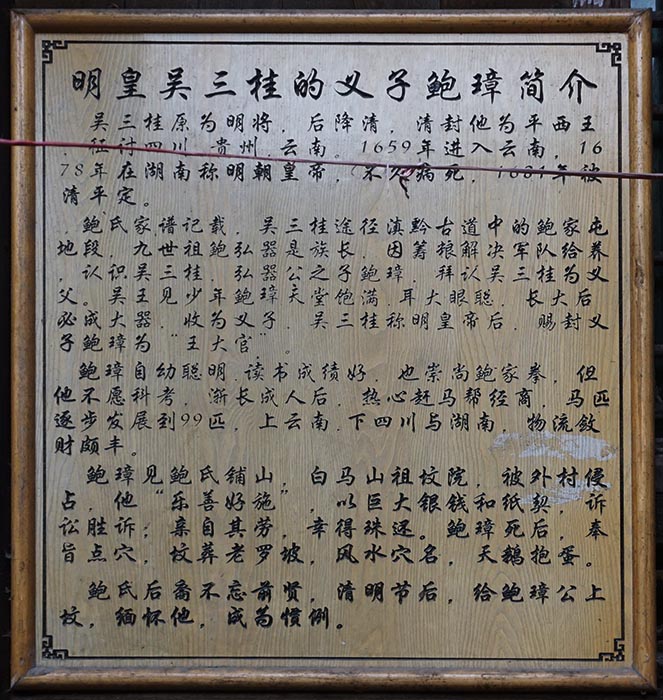 明皇吴三桂的义子鲍璋简介
吴三桂原为明将，后降清，清封他为平西王
，征讨四川，贵州，云南。1659年进入云南，16
78年在湖南称明朝皇帝，不久病死，1681年被
清平定。
鲍氏家谱记载，吴三桂途径滇黔古道中的鲍家屯
地段，九世祖鲍弘器是族长，因筹粮解决军队给养
，认识吴三桂，弘器公之子鲍璋，拜认吴三桂为义
父。吴王见少年鲍璋天堂饱满，耳大眼聪，长大后
必成大器，收为义子，吴三桂称明皇帝后，赐封义
子鲍璋为“王大官”。
鲍璋自幼聪明，读书成绩好，也崇尚鲍家拳，但
他不愿科考，渐长成人后，热心赶马帮经商，马匹
逐步发展到99匹，上云南，下四川与湖南，物流敛
财颇丰。
鲍璋见鲍氏铺山，白马山祖坟院，被外村侵
占，他“乐善好施”，以巨大银钱和纸契，诉
讼胜诉；亲自其劳，幸得珠还。鲍璋死后，奉
旨点穴，坟葬老罗坡，风水穴名，天鹅抱蛋。
鲍氏后裔不忘前贤，清明节后，给鲍璋公上
坟，缅怀他，成为惯例。